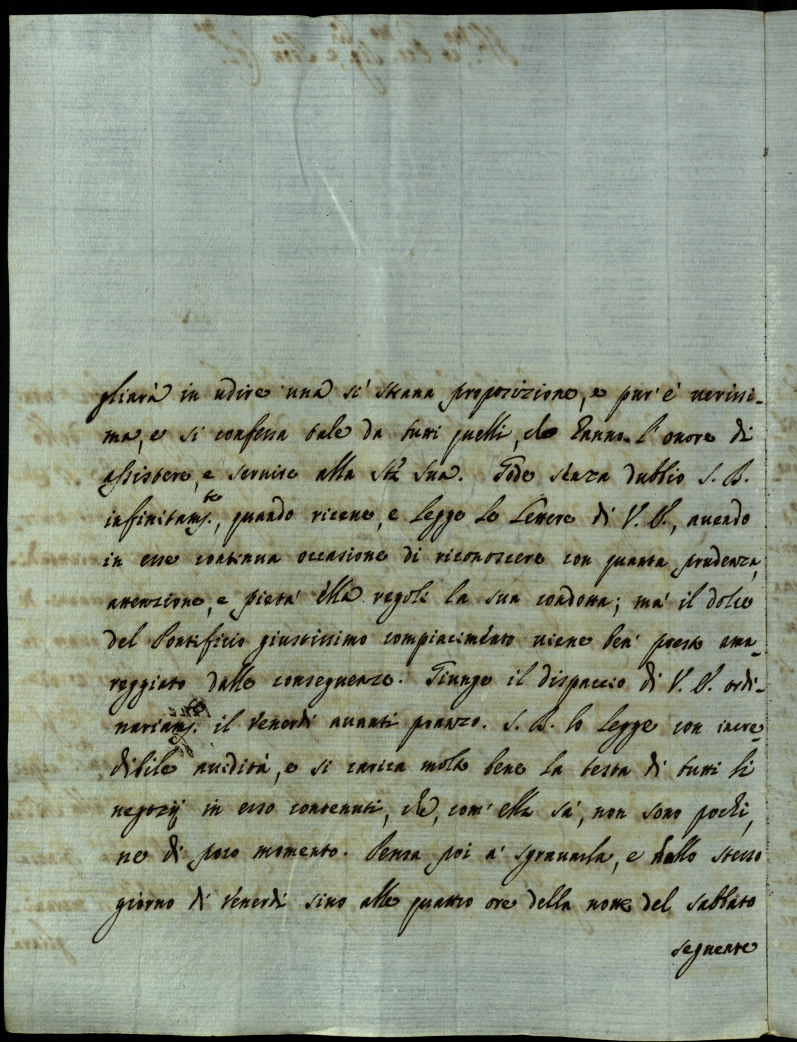 gliarà in udire una sì strana proposizione, e pur' è verissi-
ma, e si confessa tale da tutti quelli, che hanno l'onore di
assistere, e servire alla Stà Sua. Gode senza dubbio S. B.
infinitam.te, quando riceve, e legge le lettere di V. E., avendo
in esse continua occasione di riconoscere con quanta prudenza,
attenzione, e pietà ella regoli la sua condotta; mà il dolce
del Pontificio giustissimo compiacimento viene ben' presto ama-
reggiato dalle conseguenze. Giunge il dispaccio di V. E. ordi-
nariam.te il Venerdì avanti pranzo. S. B. lo legge con incre-
dibile avidità, e si carica molto bene la testa di tutti li
negozij in esso contenuti, che, com' ella sà, non sono pochi,
ne di poco momento. Pensa poi a' sgravarla, e dallo stesso
giorno di Venerdì sino alle quattro ore della notte del Sabbato
seguente